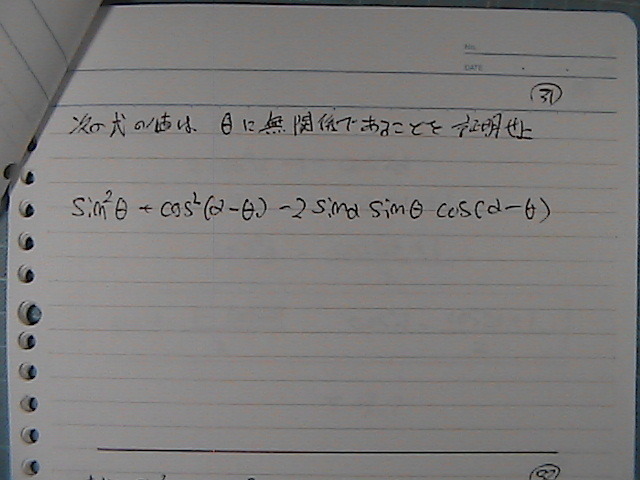 NO.
DATE
㉛
次の式の値は θに無関係であることを証明せよ
sin²θ + cos²(α-θ) -2 sinα sinθ cos(α-θ)